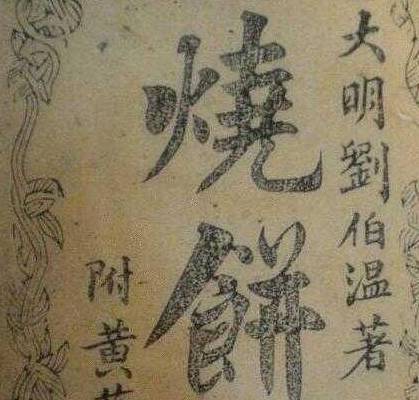 大明劉伯温著
燒餅
附黃